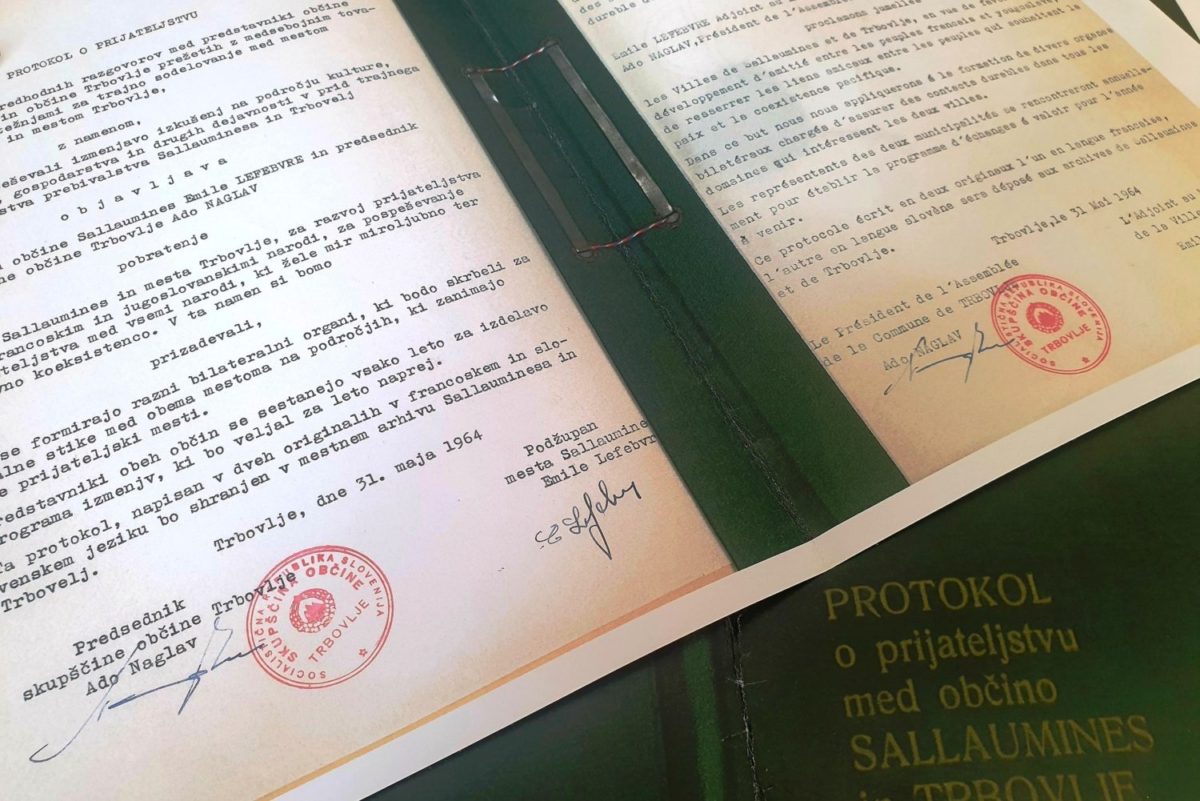 PROTOKOL O PRIJATELJSTVU
razgovorov med predstavniki občine
in občine Trbovlje Prežetih z medsebojnim tova-
za trajno sodelovanje med mestom
in mestom Trbovlje,
z namenom,
izmenjavo izkušenj na področju kulture,
gospodarstva in drugih dejavnosti v prid trajnega
prebivalstva Sallauminesa in Trbovelj
o b j a v l j a
občine Sallaumines Emile LEFEBVRE in predsednik
občine Trbovlje Ado NAGLAV
pobratenje
Sallaumines in mesta Trbovlje, za razvoj prijateljstva
in jugoslovanskimi narodi, za pospeševanje
med vsemi narodi, ki žele mir miroljubno ter
koeksistenco. V ta namen si bomo
prizadevali,
se formirajo razni bilateralni organi, ki bodo skrbeli za
stike med obema mestoma na področjih, ki zanimajo
prijateljski mesti.
obeh občin se sestanejo vsako leto za izdelavo
izmenjv, ki bo veljal za leto naprej.
protokol, napisan v dveh originalih v francoskem in slo-
venskem jeziku bo shranjen v mestnem arhivu Sallauminesa in
Trbovelj.
Trbovlje, dne 31. maja 1964
Predsednik
skupščine občine Trbovlje
Ado Naglav
Podžupan
mesta Sallaumine
Emile Lefebvr
E Lefebvre
SOCIALISTIČNA REPUBLIKA SLOVENIJA
SKUPŠČINA OBČINE
TRBOVLJE
Emile LEFEBVRE Adjoint au
Ado NAGLAV, Président de l'Assemb
proclamons jumelées
les Villes de Sallaumines et de Trbovlje, en vue de favor
développement d'amitié entre les peuples francais et yougoslave,
de resserrer les liens amicaux entre les peuples qui souhaitent la
paix et la coexistence pacifique.
Dans ce but nous nous appliquerons é la formation de divers organes
bilatéraux chargés d'assurer des contacts durables dans tous les
domaines qui intéressent les deux villes.
Les représentants des deux municipalités se rencontreront annuelle-
ment pour établir le programme d'échanges é valoir pour l'année
à venir.
Ce protocole écrit en deux originaux l'un en langue francaise,
l'autre en langue slovène sera déposé aux archives de Sallaumines
et de Trbovlje.
Trbovlje, le 31 Mai 1964
Le Président de l'Assemblée
de la Commune de TRBOVLJE
Ado NAGLAV
L'Adjoint au
de la Vill
Emil
SOCIALISTIČNA REPUBLIKA SLOVENIJA
SKUPŠČINA OBČINE
TRBOVLJE
PROTOKOL
o prijateljstvu
med občino
SALLAUMINES
in TRBOVLJE